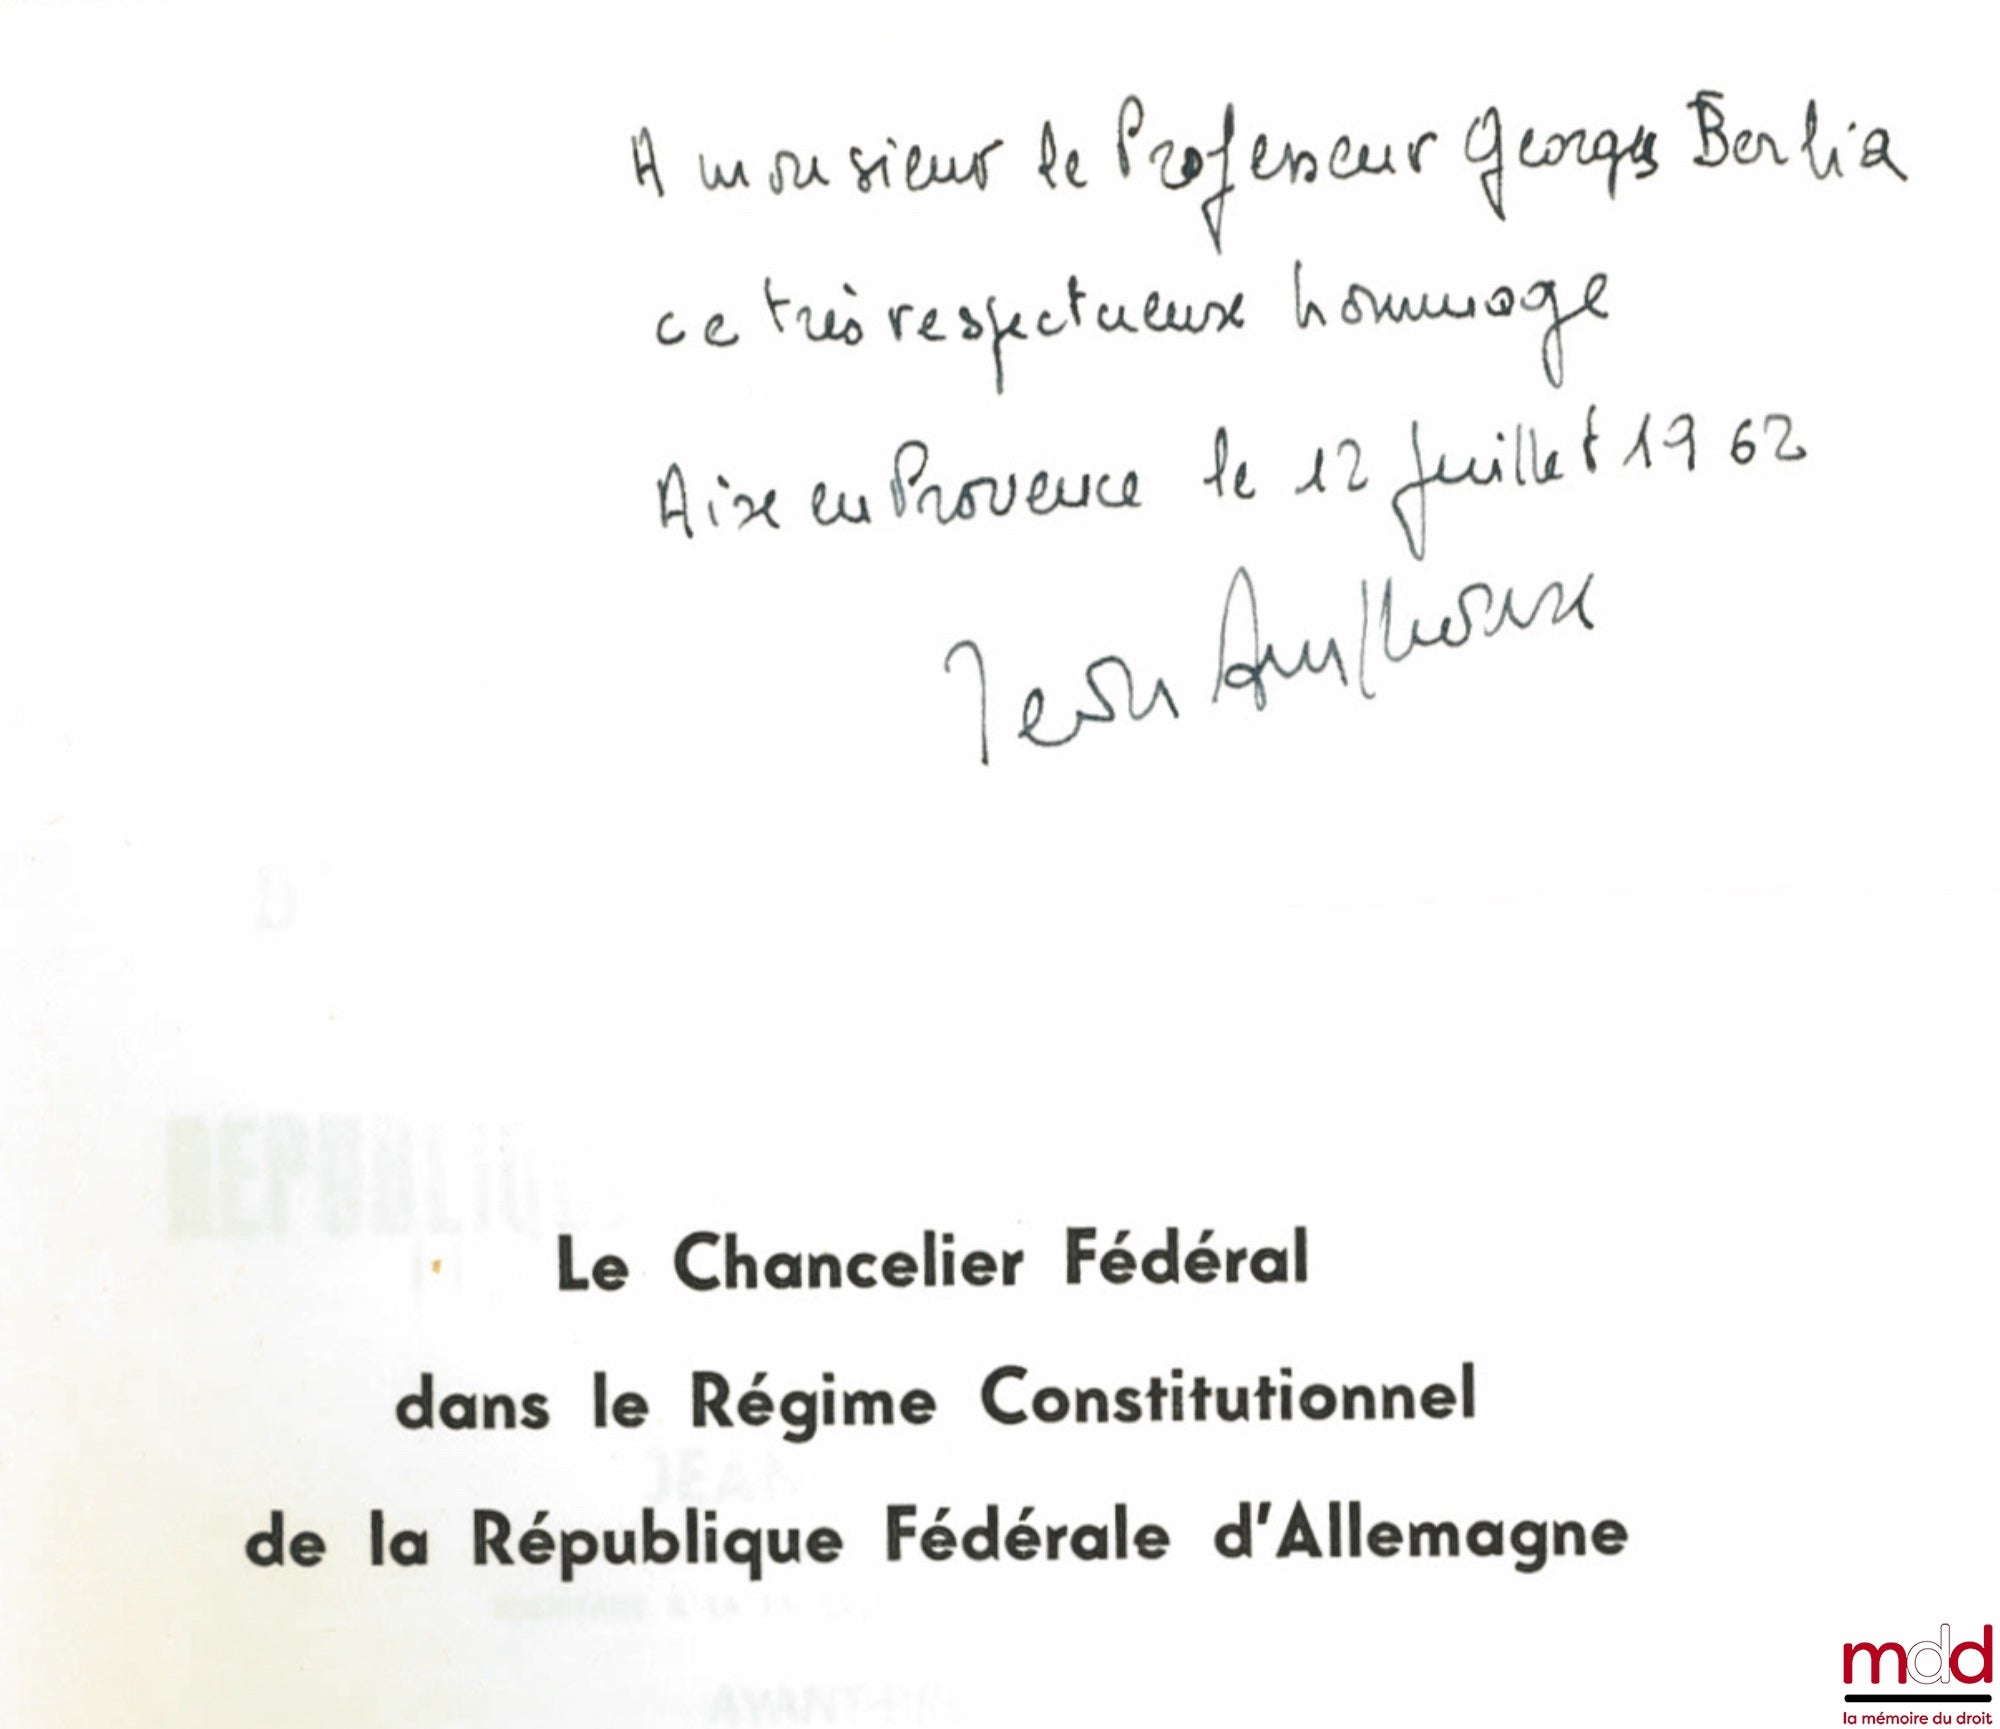 A monsieur le Professeur Georges Berlia
ce très respectueux hommage
Aix en Provence le 12 Juillet 1962
Jean Amphoux
Le Chancelier Fédéral
dans le Régime Constitutionnel
de la République Fédérale d'Allemagne
mdd
la mémoire du droit